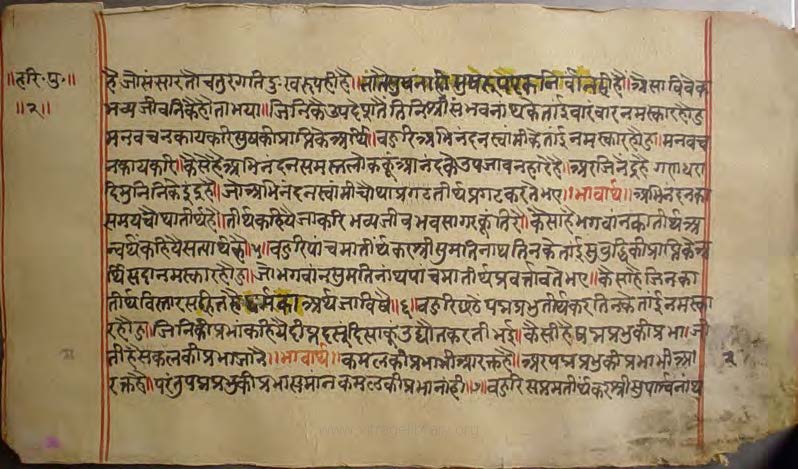 ॥हरि॰पु॰॥
॥२॥
है जो संसार तौ चतुरगति दुःखरूपही है॥ सुषरूप एक निर्वानही है॥ अैसा विवेक
भव्य जीवनिकै होता भया॥ जिनिकै उपदेशतै तिनि श्री संभवनाथ के तांई वारंवार नमस्कार होउ
मन वचन काय करि सुषकी प्राप्ति के अर्थि॥ वहुरि अभिनंदन स्वामी के तांई नमस्कार होउ॥ मन वच
न काय करि॥ कैसे है अभिनंदन समस्त लोक कूं आनंद के उपजावनहारे है॥ अर जिनेंद्र है गणधरा
दि मुनिनिके इंद्र है॥ जो अभिनंदन स्वामी चौथा प्रगट तीर्थ प्रगट करते भए॥ ॥भावार्थ॥ अभिनंदन का
समय चौथा तीर्थ है॥ तीर्थ कहियै जा करि भव्य जीव भवसागर कूं तिरै॥ कैसा है भगवान का तीर्थ अ
न्वर्थ कहियै सत्यार्थ है॥५॥ वहुरि पांचमा तीर्थंकर श्री सुमतिनाथ तिनके तांई सुवुद्धि की प्राप्ति के अ
र्थि सदा नमस्कार होउ॥ जो भगवांन सुमतिनाथ पांचमा तीर्थ प्रवर्त्तावते भए॥ कैसा है जिन का
तीर्थ विस्तार सहित है धर्म का अर्थ जा विषै॥६॥ वहुरि छठे पद्मप्रभु तीर्थंकर तिनके तांई नमस्का
र होउ॥ जिनि की प्रभा कहियै दीप्ति दसूं दिसा कूं उद्योत करती भई॥ कैसी है पद्मप्रभु की प्रभा॥ जी
ती है सकल की प्रभा जानै॥ ॥भावार्थ॥ कमल की प्रभा भी आरक्त है॥ अर पद्मप्रभु की प्रभा भी आ
रक्त है॥ परंतु पद्मप्रभु की प्रभा समान कमल की प्रभा नाही॥७॥ वहुरि सप्तम तीर्थंकर श्री सुपार्श्वनाथ
२